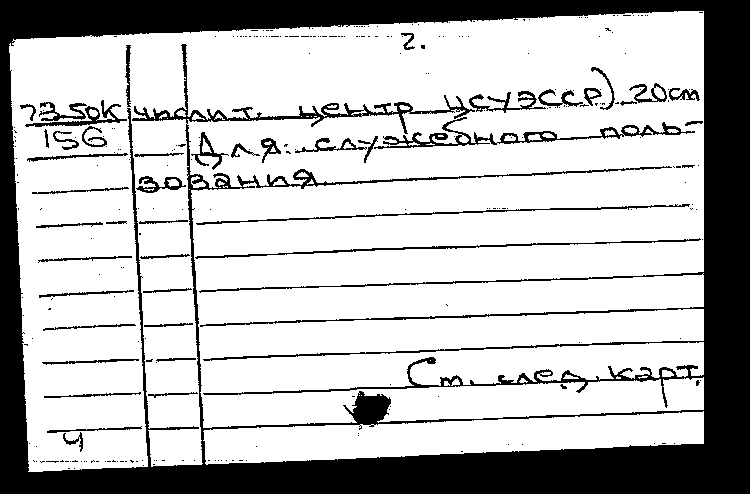 2.
числит. центр ЦСУЭССР). 20см
156
Для служебного поль-
зования.
См. след. карт.
4